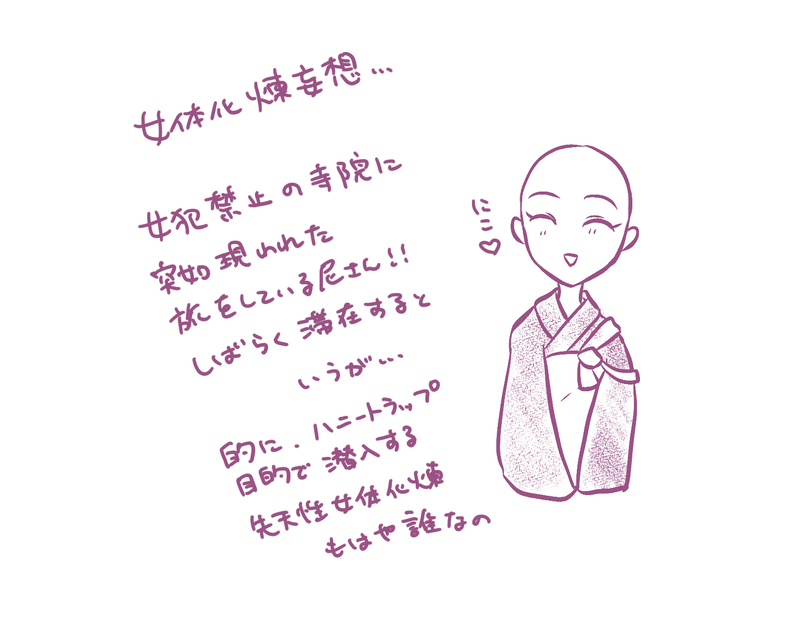 女体化煉妄想…
女犯禁止の寺院に
突如現われた
旅をしている尼さん!!
しばらく滞在すると
いうが…
的に、ハニートラップ
目的で潜入する
先天性女体化煉
もはや誰なの
にこ♡